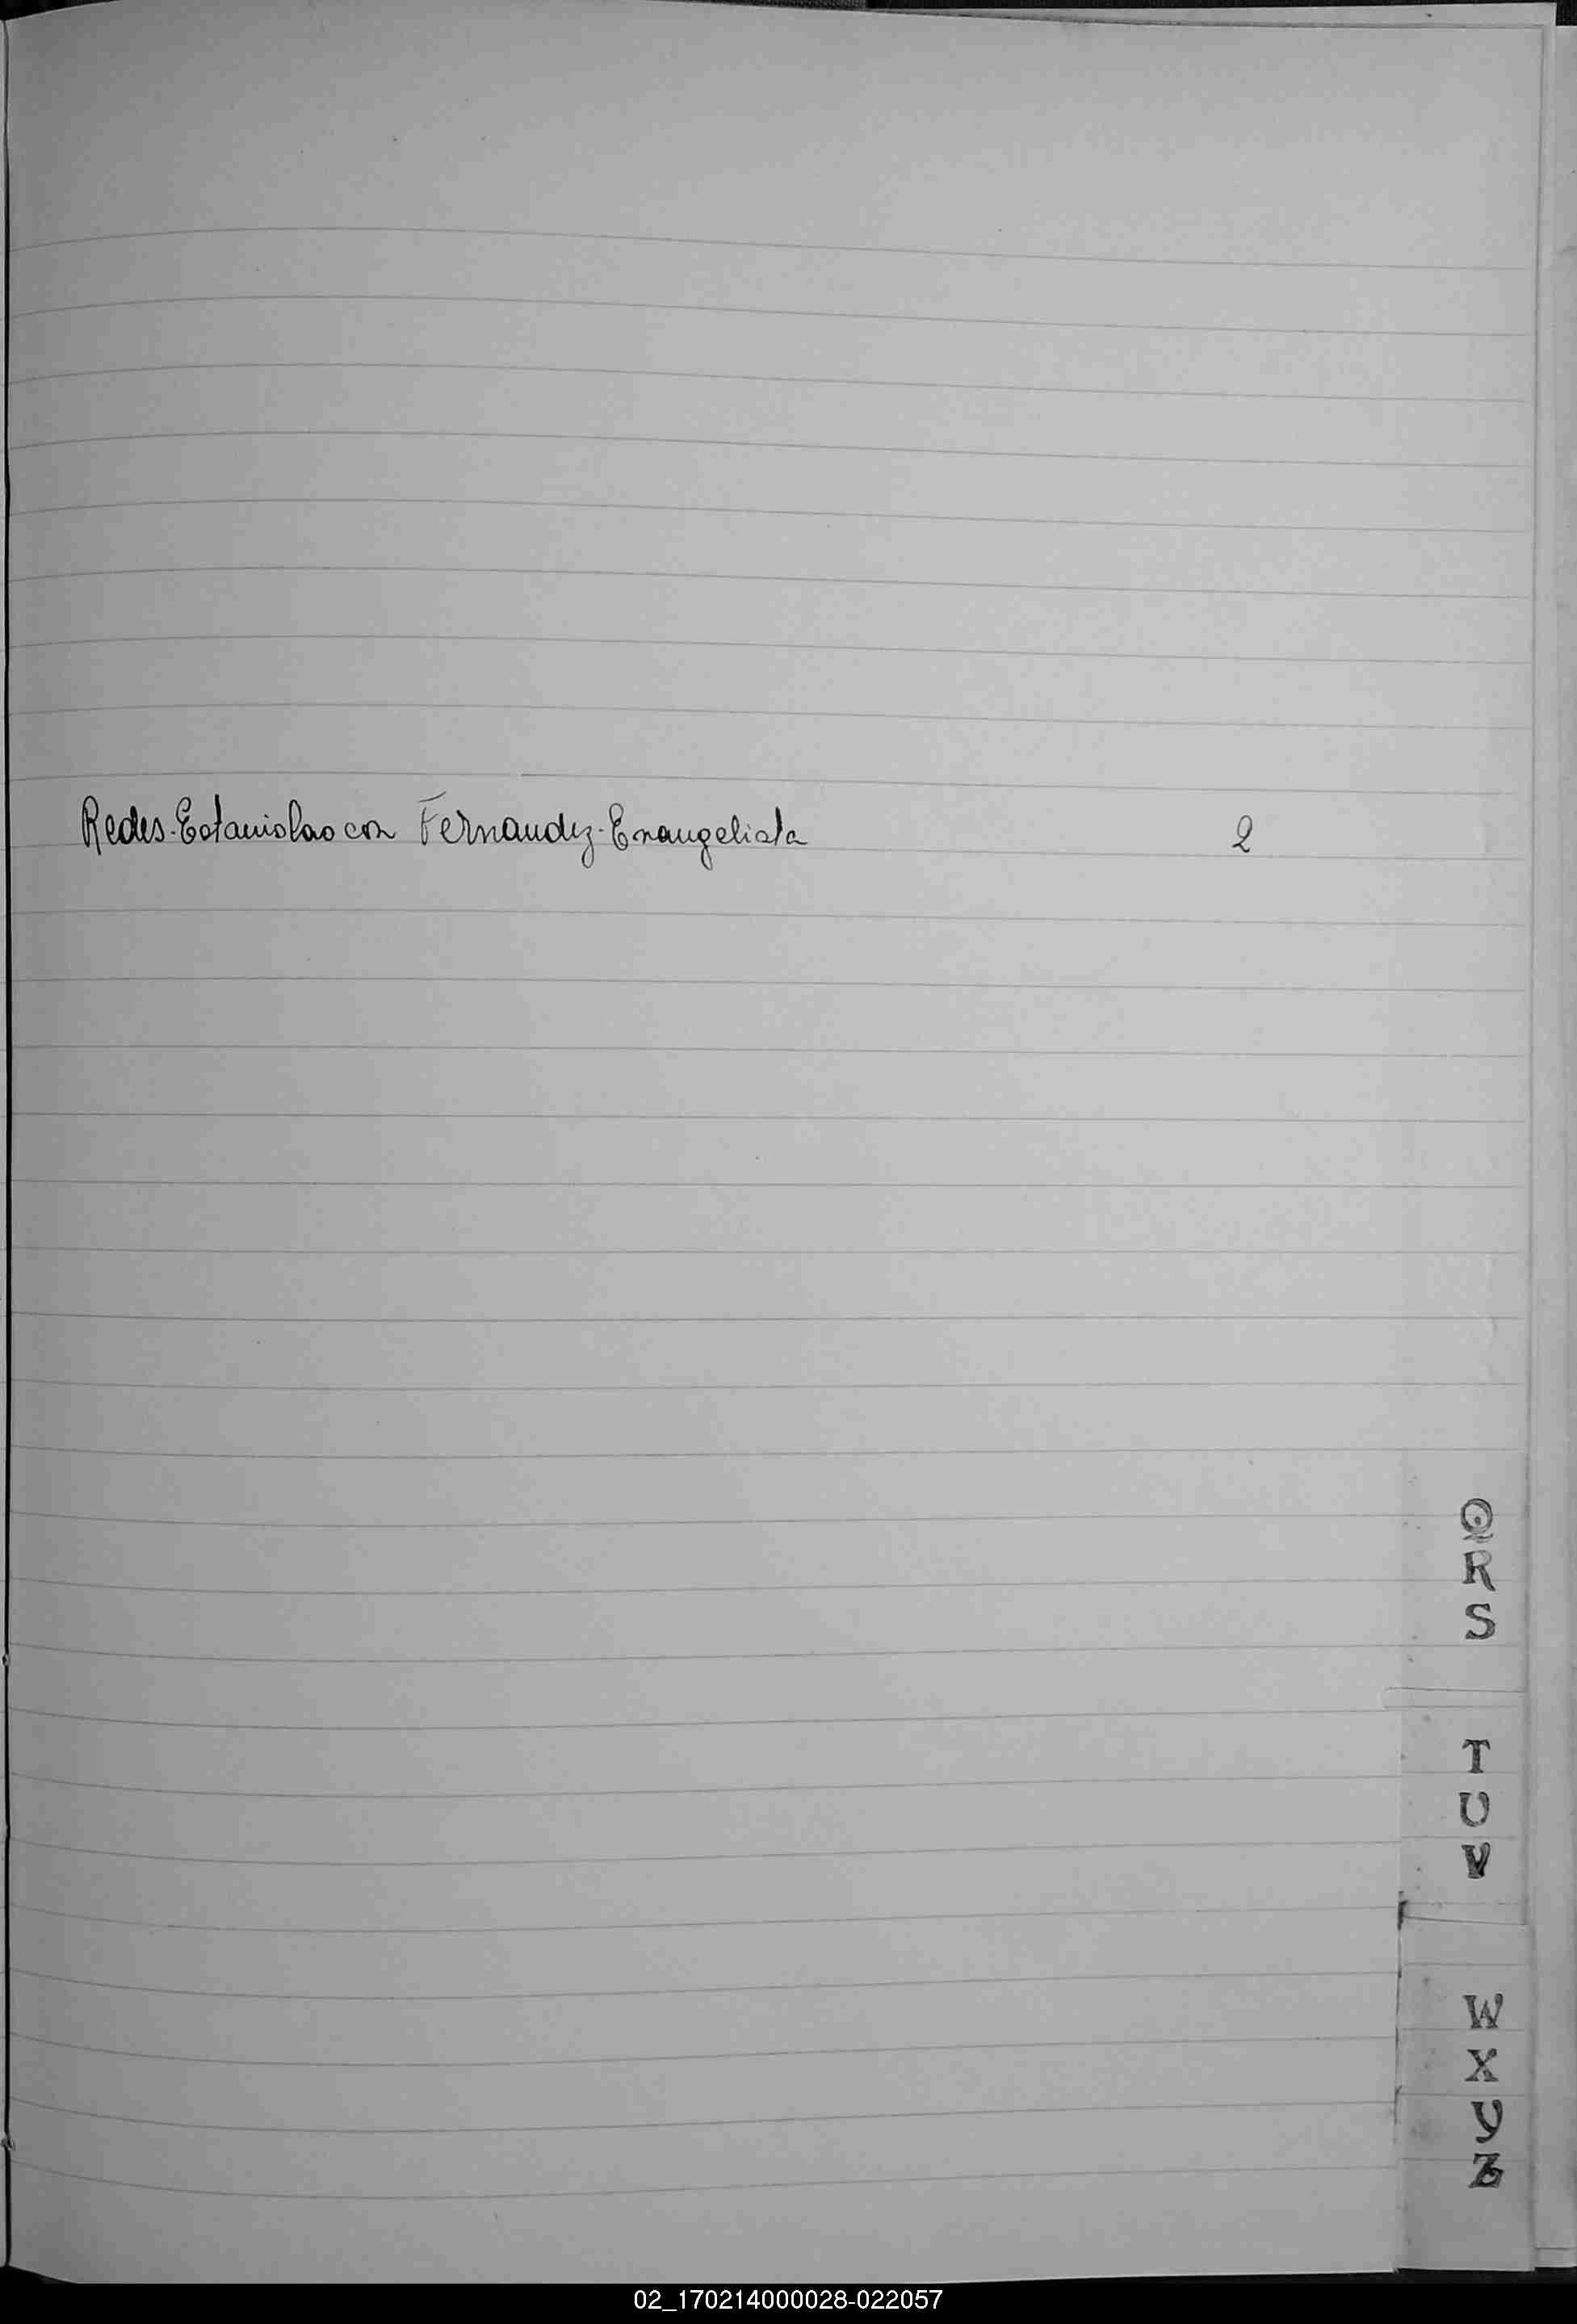 Redes-Estanislao con Fernandez-Evangelista 2
Q
R
S
T
U
V
W
X
Y
Z
02_170214000028-022057